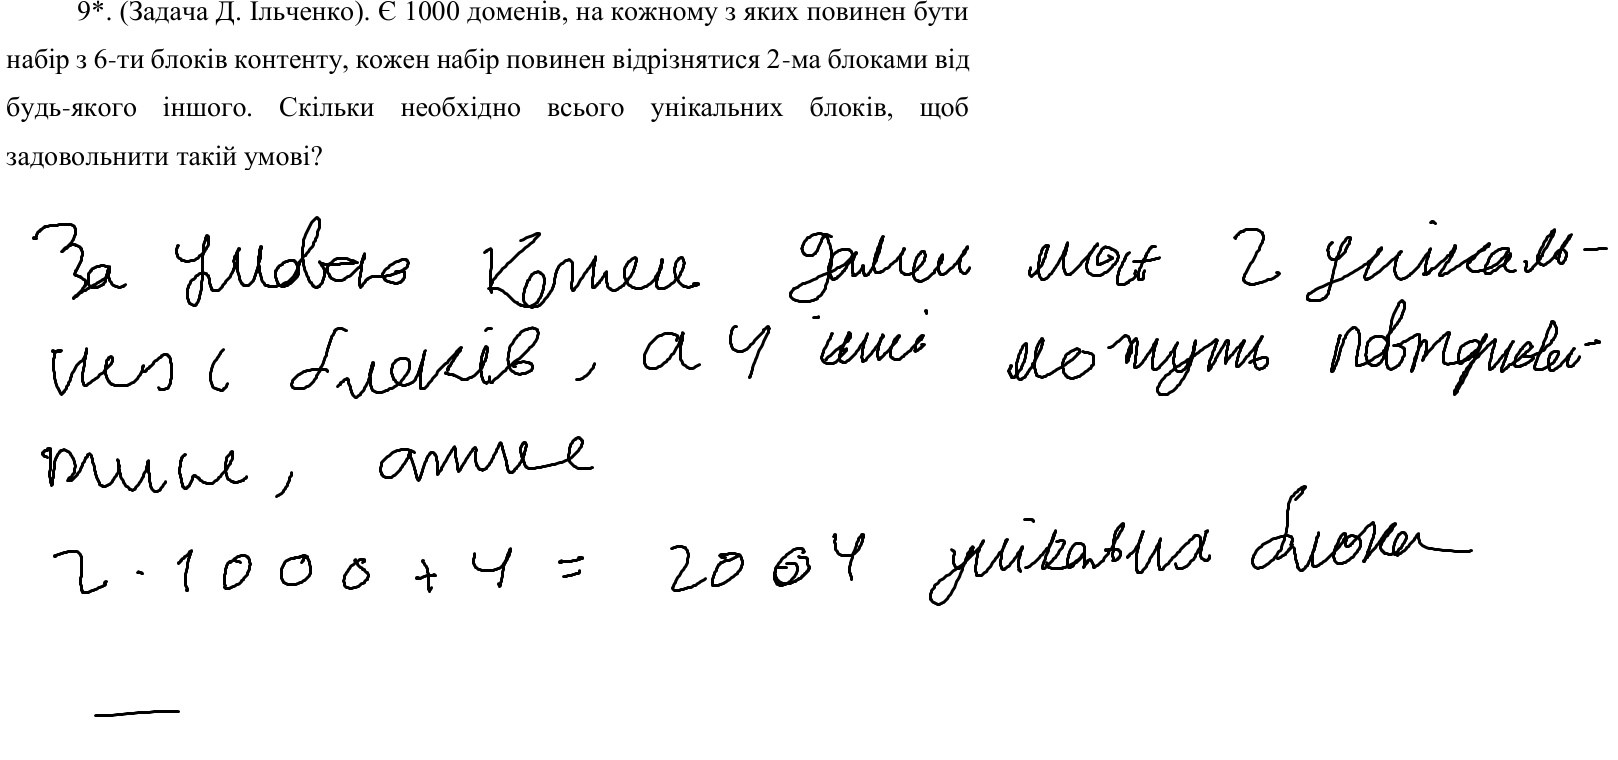 9*. (Задача Д. Ільченко). Є 1000 доменів, на кожному з яких повинен бути
набір з 6-ти блоків контенту, кожен набір повинен відрізнятися 2-ма блоками від
будь-якого іншого. Скільки необхідно всього унікальних блоків, щоб
задовольнити такій умові?
За умовою кожен домен має 2 унікаль-
них блоків, а 4 інші можуть повторюва-
тися, отже
2 · 1000 + 4 = 2004 унікальних блока